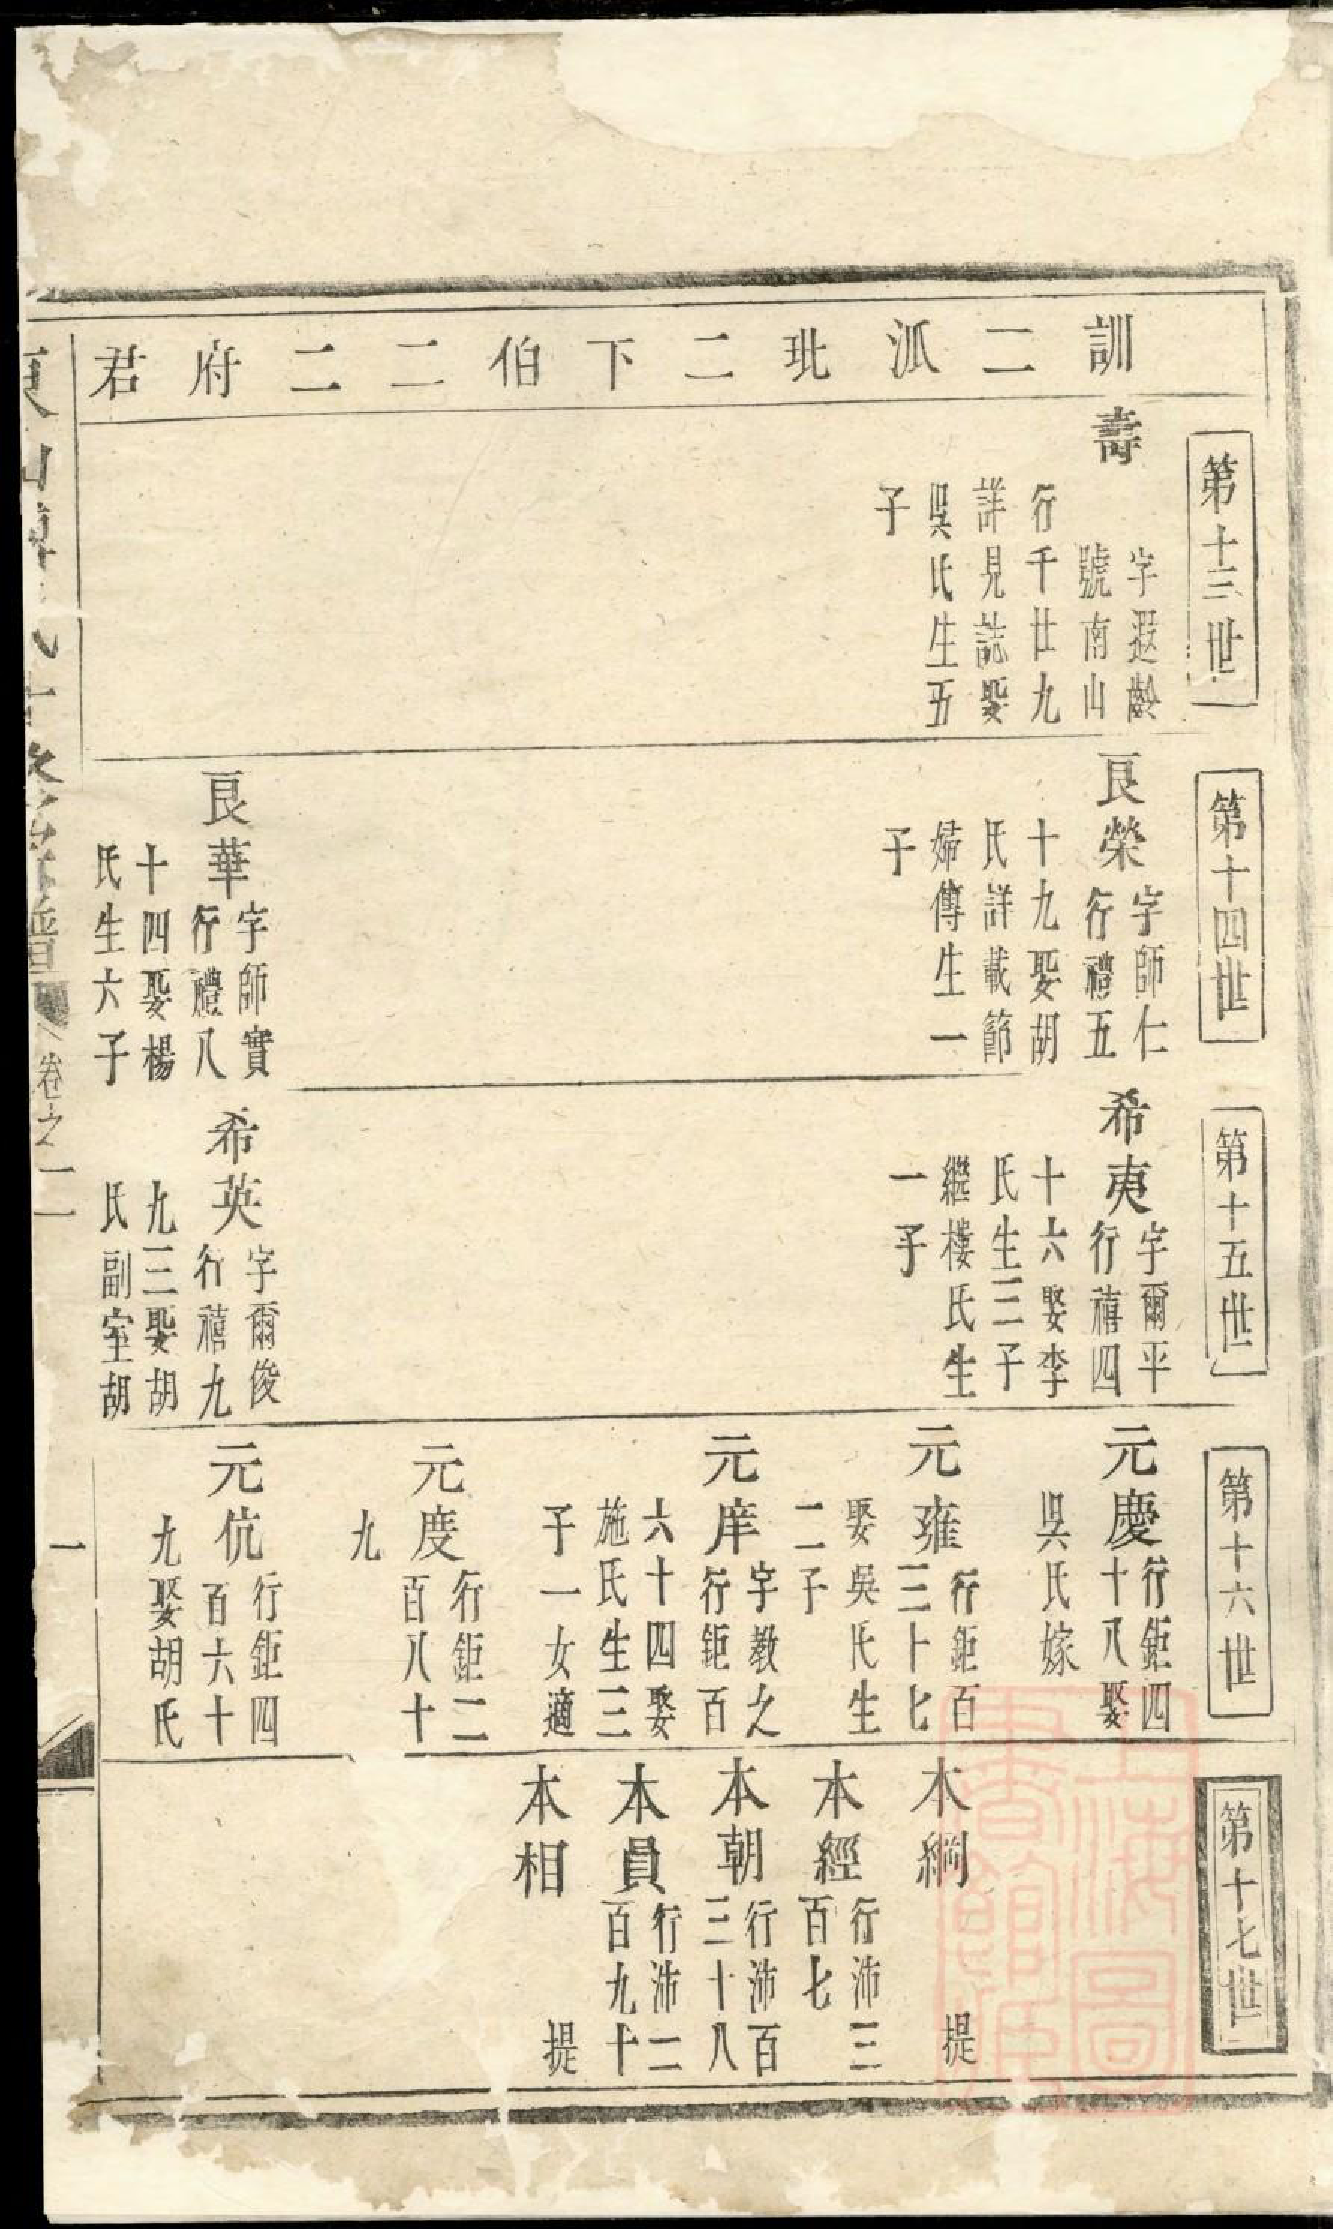 訓二派玭二下伯二二府君
第十三世
壽
字遐齡
號南山
行千廿九
詳見誌娶
吳氏生五
子
第十四世
良榮
字師仁
行禮五
十九娶胡
氏詳載節
婦傳生一
子
良華
字師實
行禮八
十四娶楊
氏生六子
第十五世
希夷
字爾平
行禧四
十六娶李
氏生三子
繼樓氏生
一子
希英
字爾俊
行禧九
九三娶胡
氏副室胡
第十六世
元慶
行鉅四
十八娶
吳氏嫁
元雍
行鉅百
三十七
娶吳氏生
二子
元庠
字教之
行鉅百
六十四娶
施氏生三
子一女適
元度
行鉅二
百八十
九
元伉
行鉅四
百六十
九娶胡氏
第十七世
本綱
提
本經
行沛三
百七
本朝
行沛百
三十八
本員
行沛二
百九十
本相
提
卷之二
一
上海圖
書館藏